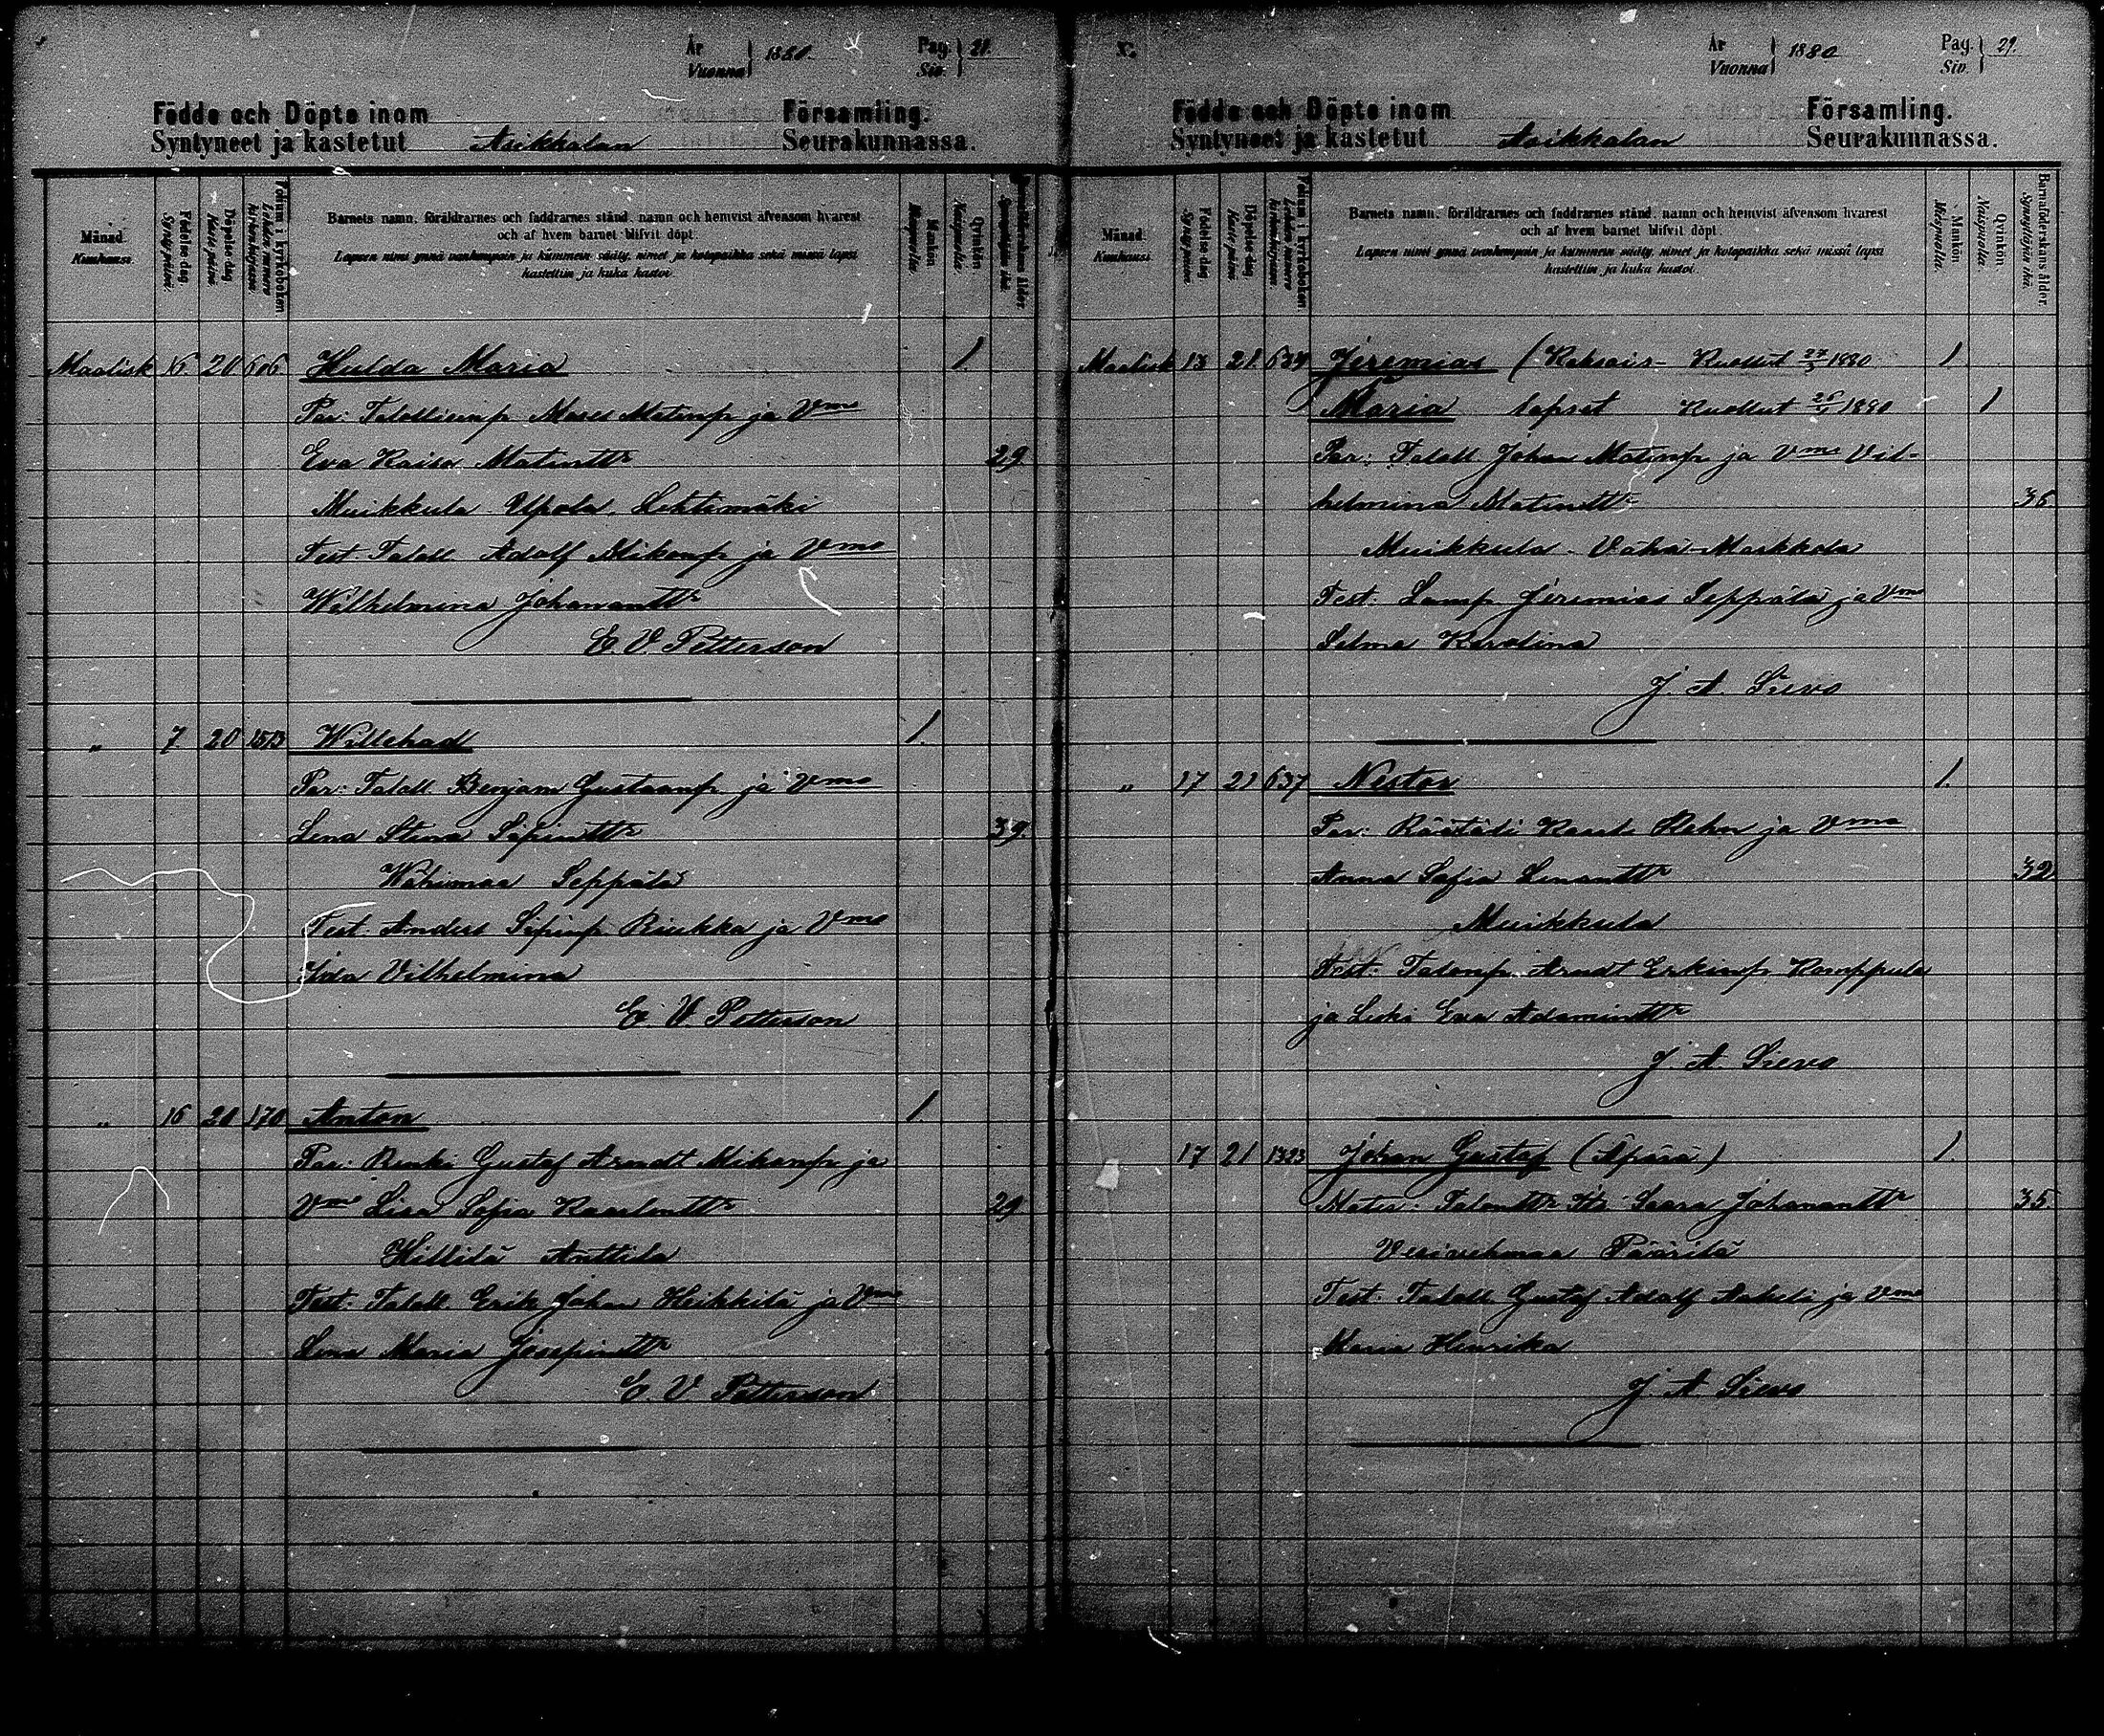 År
Vuonna } 1880.
Pag.
Siv. } 21.
Födde och Döpte inom Församling.
Syntyneet ja kastetut Asikkalan Seurakunnassa.
Månad.
Kuukausi.
Födelse dag
Syntymäpäivä.
Döpelse dag
Kaste päivä
Folium i kyrkoboken
Barnets namn, föräldrarnes och faddrarnes stånd, namn och hemvist äfvensom hvarest
och af hvem barnet blifvit döpt.
Lapsen nimi ynnä vanhempain ja kummein sääty, nimet ja kotopaikka sekä missä lapsi
kastettiin ja kuka kastoi.
Mankön
Miespuolia.
Qvinkön
Naispuolia.
Maalisk 16. 20 606 Hulda Maria 1.
Par: Matinp ja Vmo
Eva Kaisa Matintr 29
Muikkula Upola Lehtimäki
Test. Taloll. Adolf Mikonp ja Vmo
Wilhelmina Johanantr
E. V. Petterson
" 7 20 Willehad 1.
Par: Taloll. Benjam Gustaanp ja Vmo
Lena Stina Sipintr 39
Wähimaa Seppälä
Test. Anders Sipinp Riukka ja Vmo
Ida Vilhelmina
E. V. Petterson
" 16 20 170 Anton 1.
Par: Renki Gustaf Arndt Mikonp ja
Vmo Lisa Sofia Kaarlentr 29
Hillilä Anttila
Test: Taloll. Erik Johan Heikkilä ja Vmo
Lena Maria Josepintr
E. V. Petterson
År
Vuonna } 1880
Pag.
Siv. } 29.
Födde och Döpte inom Församling.
Syntyneet ja kastetut Asikkalan Seurakunnassa.
Månad.
Kuukausi.
Födelse dag
Syntymäpäivä.
Döpelse dag
Kaste päivä
Folium i kyrkoboken
Barnets namn, föräldrarnes och faddrarnes stånd, namn och hemvist äfvensom hvarest
och af hvem barnet blifvit döpt.
Lapsen nimi ynnä vanhempain ja kummein sääty, nimet ja kotopaikka sekä missä lapsi
kastettiin ja kuka kastoi.
Mankön
Miespuolia.
Qvinkön
Naispuolia.
Barnaföderskans ålder.
Synnyttäjän ikä.
Maalisk 13 21 634 Jeremias ( Kaksois- Kuollut 1880 1.
Maria lapset Kuollut 1880 1
Par: Taloll. Johan Matinp ja Vmo Vil-
helmina Matintr 36
Muikkula Vähä-Markkola
Test: Lamp. Jeremias Seppälä ja Vmo
Selma Karolina
J. A. Sievo
" 17 21 637 Nestor 1.
Par: Räätäli Kaarle Stahn ja Vmo
Anna Sofia 32
Muikkula
Test: Talonp. Arndt Erkinp Kamppula
ja Leski Eva Adamintr
J. A. Sievo
17 21 1323 Johan Gustaf (Äpärä) 1.
Mater: Talontr Saara Johanantr 35.
Vesivehmaa Päärilä
Test: Taloll. Gustaf Adolf ja Vmo
Maria Henrika
J. A. Sievo